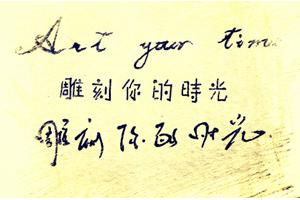 Art your time
雕刻你的時光
雕刻你的时光